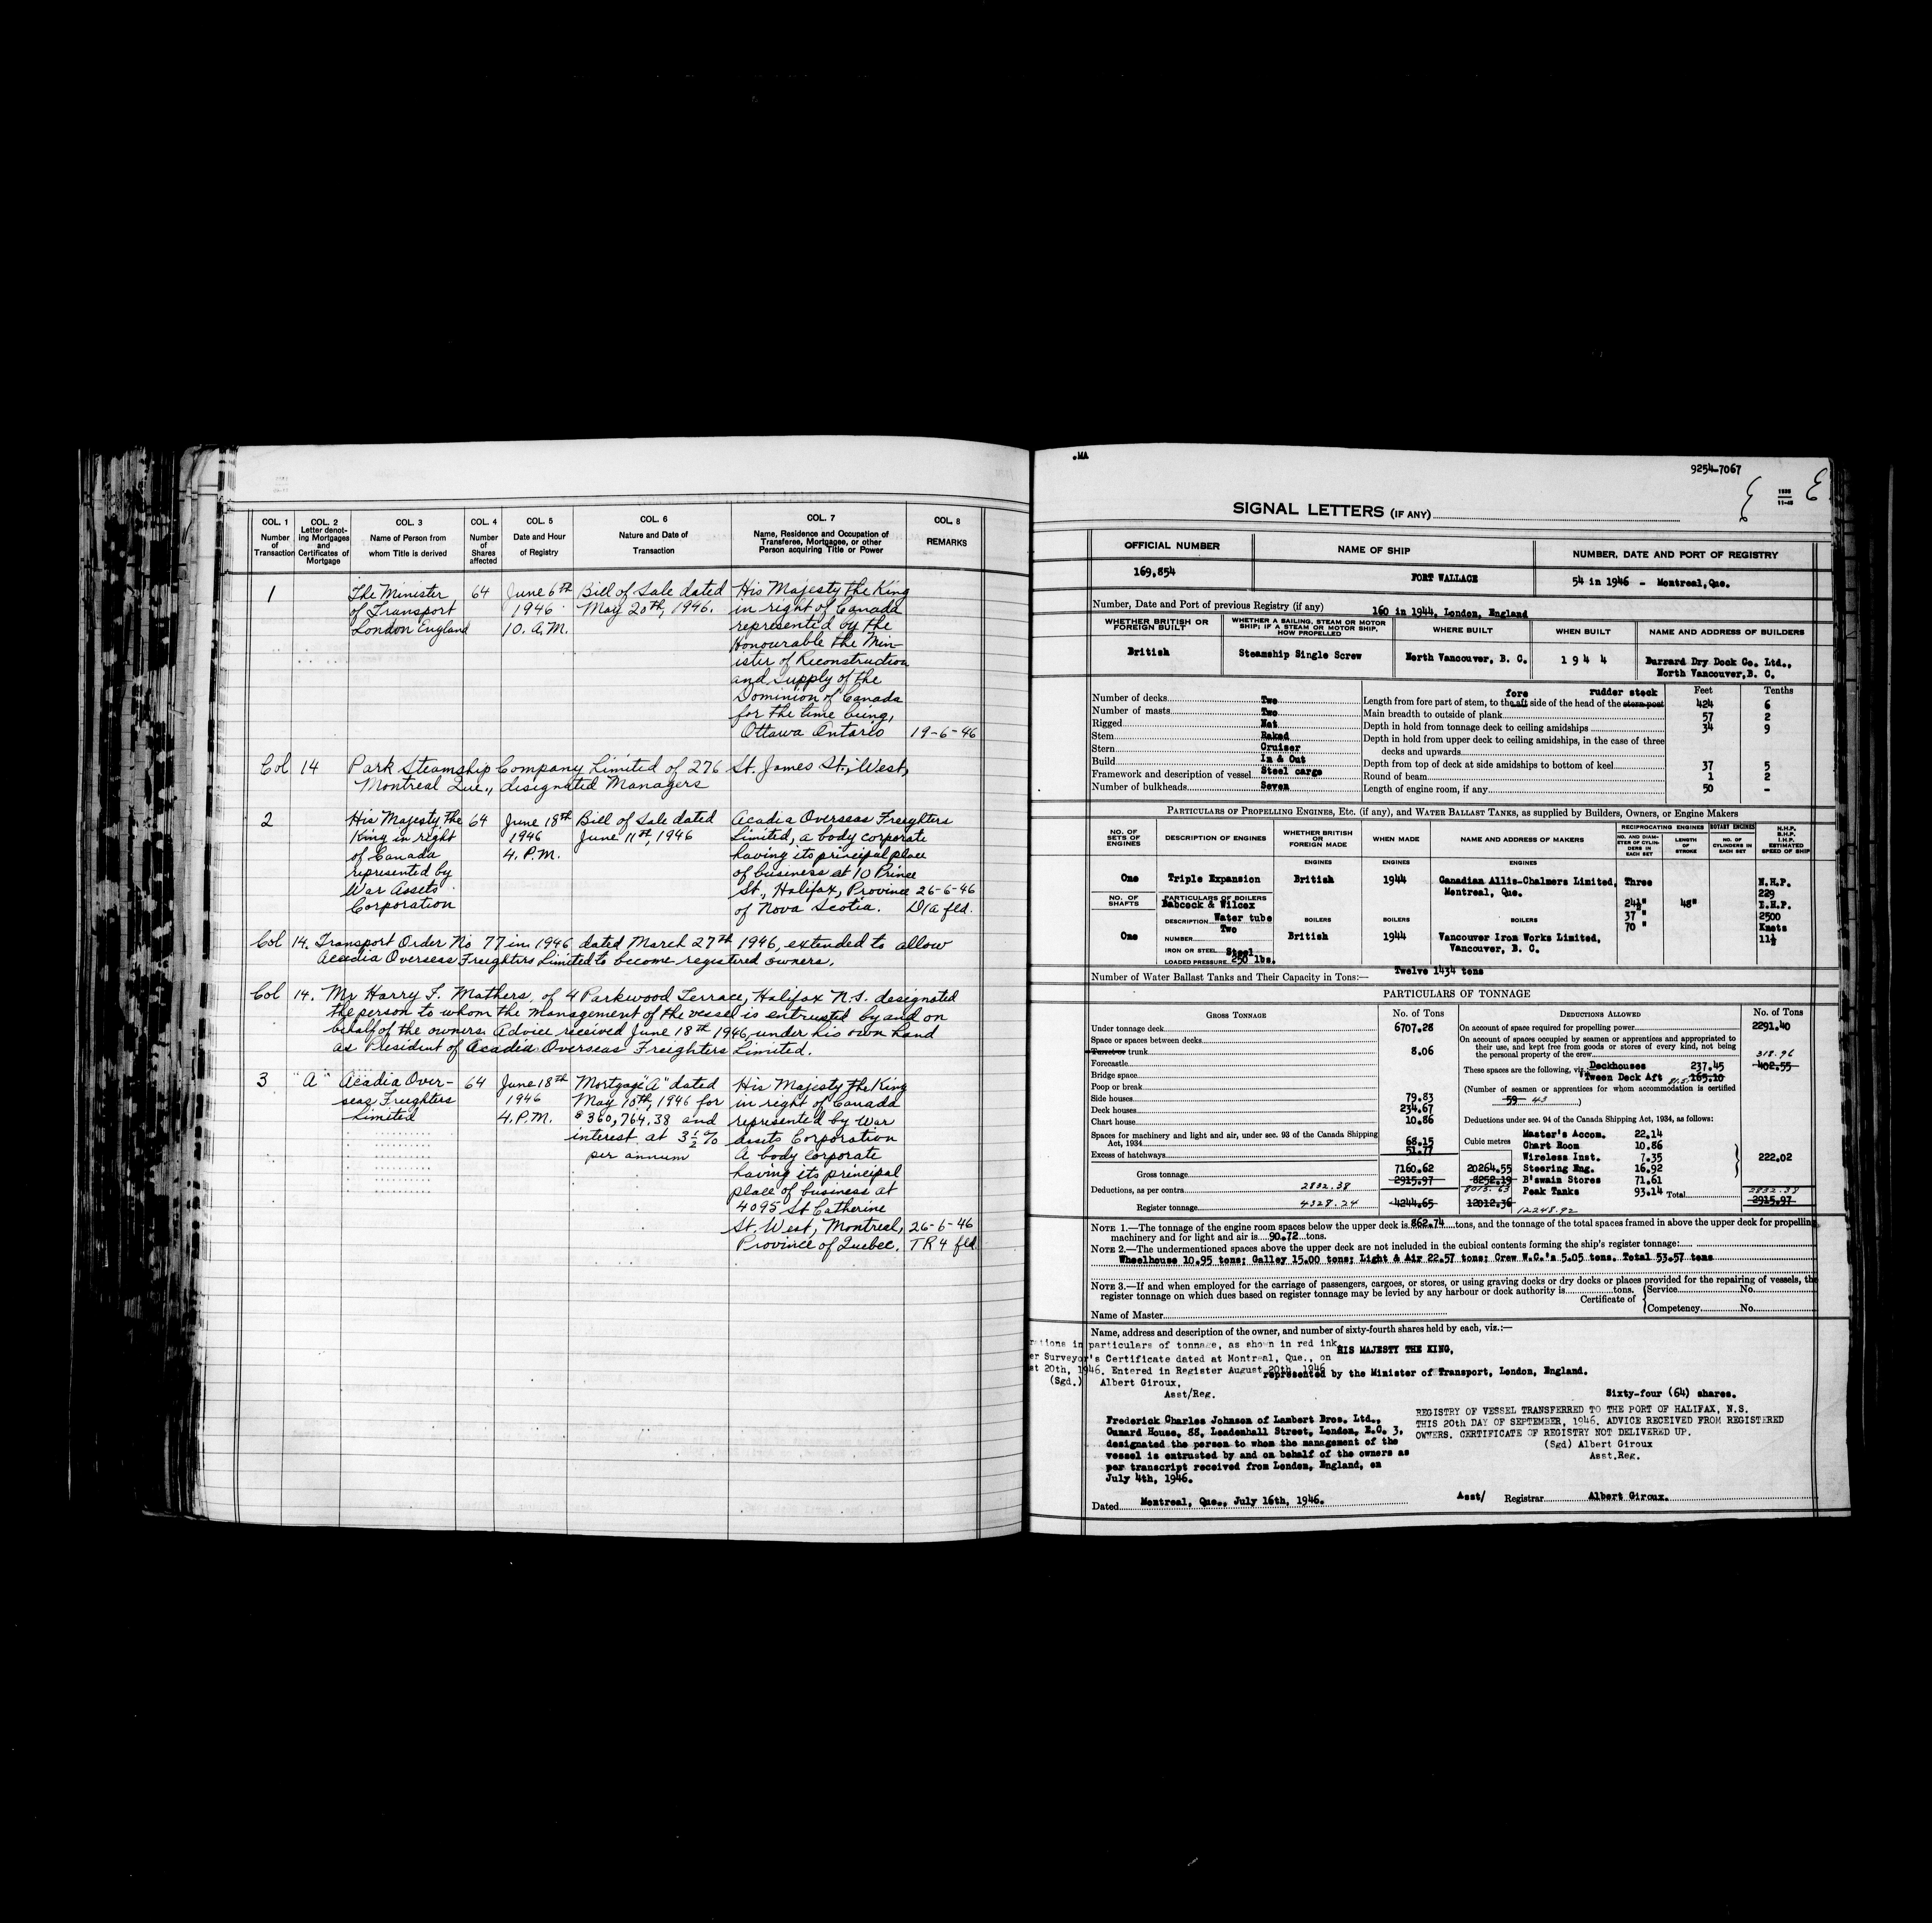 COL. 1
Number
of
Transaction
COL. 2
Letter denot-
ing Mortgages
and
Certificates of
Mortgage
COL. 3
Name of Person from
whom Title is derived
COL. 4
Number
of
Shares
affected
COL. 5
Date and Hour
of Registry
COL. 6
Nature and Date of
Transaction
COL. 7
Name, Residence and Occupation of
Transferee, Mortgagee, or other
Person acquiring Title or Power
COL. 8
REMARKS
1 The Minister 64 June 6th Bill of Sale dated His Majesty the King
of Transport 1946 May 20th, 1946. in right of Canada
London England 10. A.M. represented by the
Honourable the Min-
ister of Reconstruction
and Supply of the
Dominion of Canada
for the time being,
Ottawa Ontario 19-6-46
Col 14 Park Steamship Company Limited of 276 St. James St., West,
Montreal Que., designated Managers
2 His Majesty the 64 June 18th Bill of Sale dated Acadia Overseas Freighters
King in right 1946 June 11th, 1946 Limited, a body corporate
of Canada 4. P.M. having its principal place
represented by of business at 10 Prince
War Assets St., Halifax, Province 26-6-46
Corporation of Nova Scotia. D/a fld.
Col 14. Transport Order No 77 in 1946 dated March 27th 1946, extended to allow
Acadia Overseas Freighters Limited to become registered owners.
Col 14. Mr Harry I. Mathers, of 4 Parkwood Terrace, Halifax N.S. designated
the person to whom the management of the vessel is entrusted by and on
behalf of the owners. Advice received June 18th 1946, under his own hand
as President of Acadia Overseas Freighters Limited.
3 "A" Acadia Over- 64 June 18th Mortgage "A" dated His Majesty the King
seas Freighters 1946 May 10th, 1946 for in right of Canada
Limited 4. P.M. $360,764.38 and represented by War
interest at 3½% Assets Corporation
per annum A body corporate
having its principal
place of business at
4095 St Catherine
St. West, Montreal, 26-6-46
Province of Quebec. TR4 fld
.MA
9254-7067
SIGNAL LETTERS (IF ANY)
1938
11-45
OFFICIAL NUMBER NAME OF SHIP NUMBER, DATE AND PORT OF REGISTRY
169,854 FORT WALLACE 54 in 1946 - Montreal, Que.
Number, Date and Port of previous Registry (if any) 160 in 1944, London, England
WHETHER BRITISH OR
FOREIGN BUILT
WHETHER A SAILING, STEAM OR MOTOR
SHIP; IF A STEAM OR MOTOR SHIP,
HOW PROPELLED
WHERE BUILT WHEN BUILT NAME AND ADDRESS OF BUILDERS
British Steamship Single Screw North Vancouver, B. C. 1 9 4 4 Burrard Dry Dock Co. Ltd.,
North Vancouver, B. C.
Number of decks Two
Number of masts Two
Rigged Not
Stem Raked
Stern Cruiser
Build In & Out
Framework and description of vessel Steel cargo
Number of bulkheads Seven
fore rudder stock Feet Tenths
Length from fore part of stem, to the aft side of the head of the stern post 424 6
Main breadth to outside of plank 57 2
Depth in hold from tonnage deck to ceiling amidships 34 9
Depth in hold from upper deck to ceiling amidships, in the case of three
decks and upwards
Depth from top of deck at side amidships to bottom of keel 37 5
Round of beam 1 2
Length of engine room, if any 50 -
PARTICULARS OF PROPELLING ENGINES, ETC. (if any), and WATER BALLAST TANKS, as supplied by Builders, Owners, or Engine Makers
NO. OF
SETS OF
ENGINES
DESCRIPTION OF ENGINES
WHETHER BRITISH
OR
FOREIGN MADE
WHEN MADE
NAME AND ADDRESS OF MAKERS
RECIPROCATING ENGINES ROTARY ENGINES
NO. AND DIAM-
ETER OF CYLIN-
DERS IN
EACH SET
LENGTH
OF
STROKE
NO. OF
CYLINDERS IN
EACH SET
N.H.P.
B.H.P.
I.H.P.
ESTIMATED
SPEED OF SHIP
ENGINES ENGINES ENGINES
One Triple Expansion British 1944 Canadian Allis-Chalmers Limited, Three N.H.P.
Montreal, Que. 229
24½" 48" I.H.P.
37 " 2500
70 " Knots
11½
NO. OF
SHAFTS
PARTICULARS OF BOILERS
Babcock & Wilcox
DESCRIPTION Water tube BOILERS BOILERS BOILERS
One NUMBER Two British 1944 Vancouver Iron Works Limited,
Vancouver, B. C.
IRON OR STEEL Steel
LOADED PRESSURE 250 lbs.
Number of Water Ballast Tanks and Their Capacity in Tons:— Twelve 1434 tons
PARTICULARS OF TONNAGE
GROSS TONNAGE No. of Tons
Under tonnage deck 6707.28
Space or spaces between decks
Turret or trunk 8.06
Forecastle
Bridge space
Poop or break
Side houses 79.83
Deck houses 234.67
Chart house 10.86
Spaces for machinery and light and air, under sec. 93 of the Canada Shipping
Act, 1934 68.15
Excess of hatchways 51.77
Cubic metres
Gross tonnage 7160.62 20264.55
Deductions, as per contra 2832.38 2915.97 8252.19
8015.63
Register tonnage 4328.24 4244.65 12012.36
12248.92
DEDUCTIONS ALLOWED No. of Tons
On account of space required for propelling power 2291.40
On account of spaces occupied by seamen or apprentices and appropriated to
their use, and kept free from goods or stores of every kind, not being
the personal property of the crew 318.96
402.55
These spaces are the following, viz.: Deckhouses 237.45
'Tween Deck Aft 81.51 165.10
(Number of seamen or apprentices for whom accommodation is certified
59 43 )
Deductions under sec. 94 of the Canada Shipping Act, 1934, as follows:
Master's Accom. 22.14
Chart Room 10.86
Wireless Inst. 7.35 222.02
Steering Eng. 16.92
B'swain Stores 71.61
Peak Tanks 93.14 Total 2832.38
2915.97
NOTE 1.—The tonnage of the engine room spaces below the upper deck is 862.74 tons, and the tonnage of the total spaces framed in above the upper deck for propelling
machinery and for light and air is 90.72 tons.
NOTE 2.—The undermentioned spaces above the upper deck are not included in the cubical contents forming the ship's register tonnage:—
Wheelhouse 10.95 tons; Galley 15.00 tons; Light & Air 22.57 tons; Crew W.C.'s 5.05 tons. Total 53.57 tons
NOTE 3.—If and when employed for the carriage of passengers, cargoes, or stores, or using graving docks or dry docks or places provided for the repairing of vessels, the
register tonnage on which dues based on register tonnage may be levied by any harbour or dock authority is tons.
Certificate of Service No.
Competency No.
Name of Master
Name, address and description of the owner, and number of sixty-fourth shares held by each, viz.:—
in particulars of tonnage, as shown in red ink
er Surveyor's Certificate dated at Montreal, Que., on
at 20th, 1946. Entered in Register August 20th, 1946
(Sgd.) Albert Giroux,
Asst/Reg.
HIS MAJESTY THE KING,
represented by the Minister of Transport, London, England.
Sixty-four (64) shares.
Frederick Charles Johnson of Lambert Bros. Ltd.,
Cunard House, 88, Leadenhall Street, London, E.C. 3,
designated the person to whom the management of the
vessel is entrusted by and on behalf of the owners as
per transcript received from London, England, on
July 4th, 1946.
REGISTRY OF VESSEL TRANSFERRED TO THE PORT OF HALIFAX, N.S.
THIS 20th DAY OF SEPTEMBER, 1946. ADVICE RECEIVED FROM REGISTERED
OWNERS. CERTIFICATE OF REGISTRY NOT DELIVERED UP.
(Sgd) Albert Giroux
Asst.Reg.
Dated Montreal, Que., July 16th, 1946. Asst/ Registrar Albert Giroux.